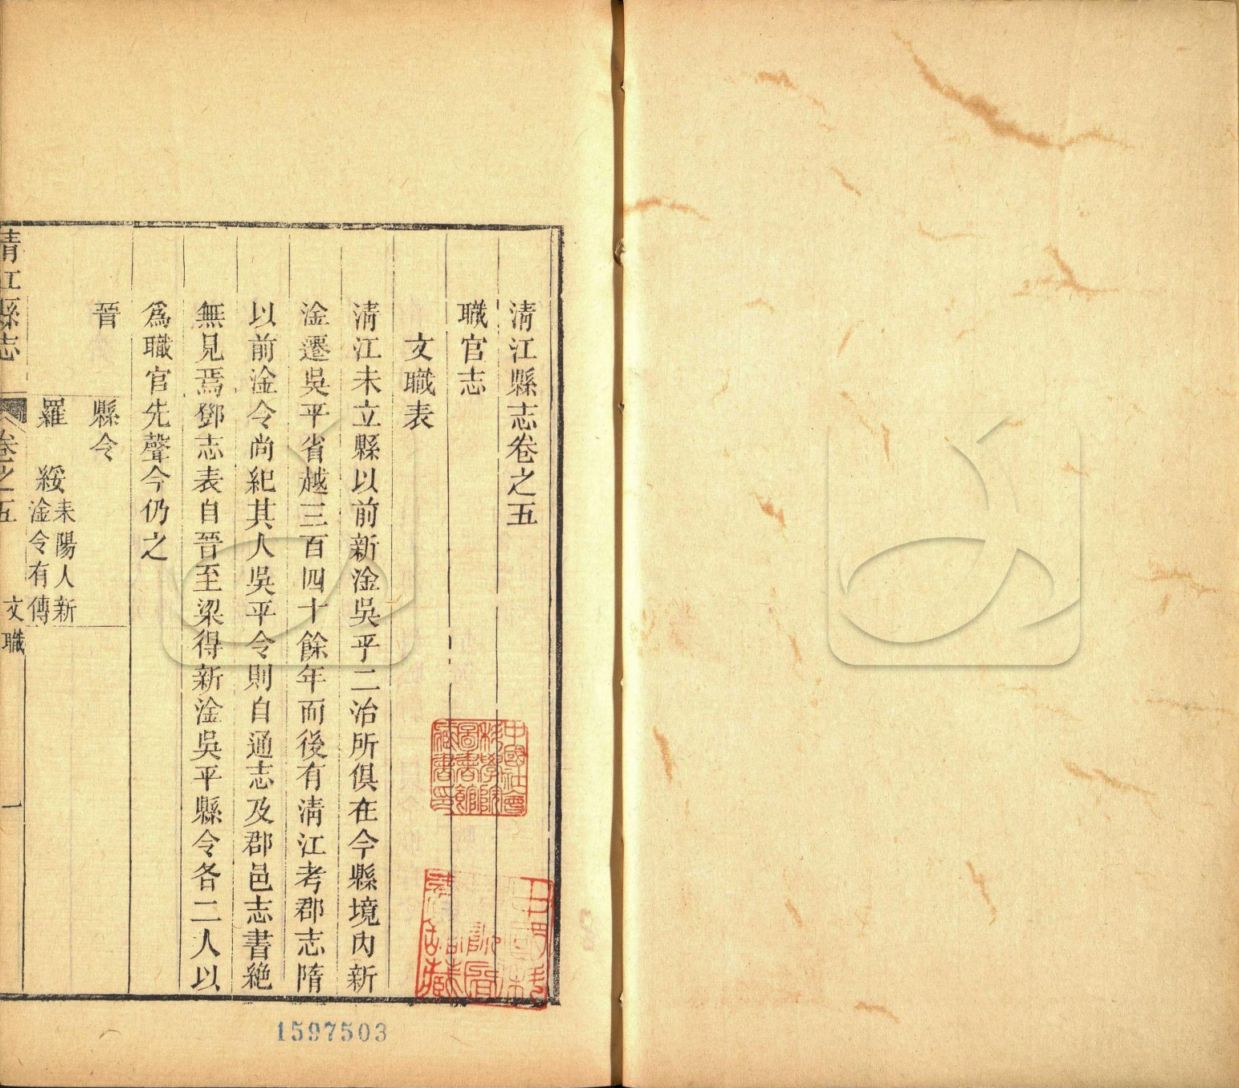 清江縣志卷之五
職官志
文職表
清江未立縣以前新淦吳平二治所俱在今縣境內新
淦遷吳平省越三百四十餘年而後有清江考郡志隋
以前淦令尚紀其人吳平令則自通志及郡邑志書絶
無見焉鄧志表自晉至梁得新淦吳平縣令各二人以
爲職官先聲今仍之
縣令
晉
羅 綏 耒陽人新
淦令有傳
清江縣志 卷之五 文職 一
中國社會
科學院
圖書館
藏書印
1597503